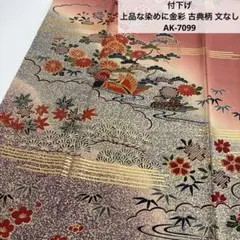 付下げ
上品な染めに金彩 古典柄 文なし
AK-7099